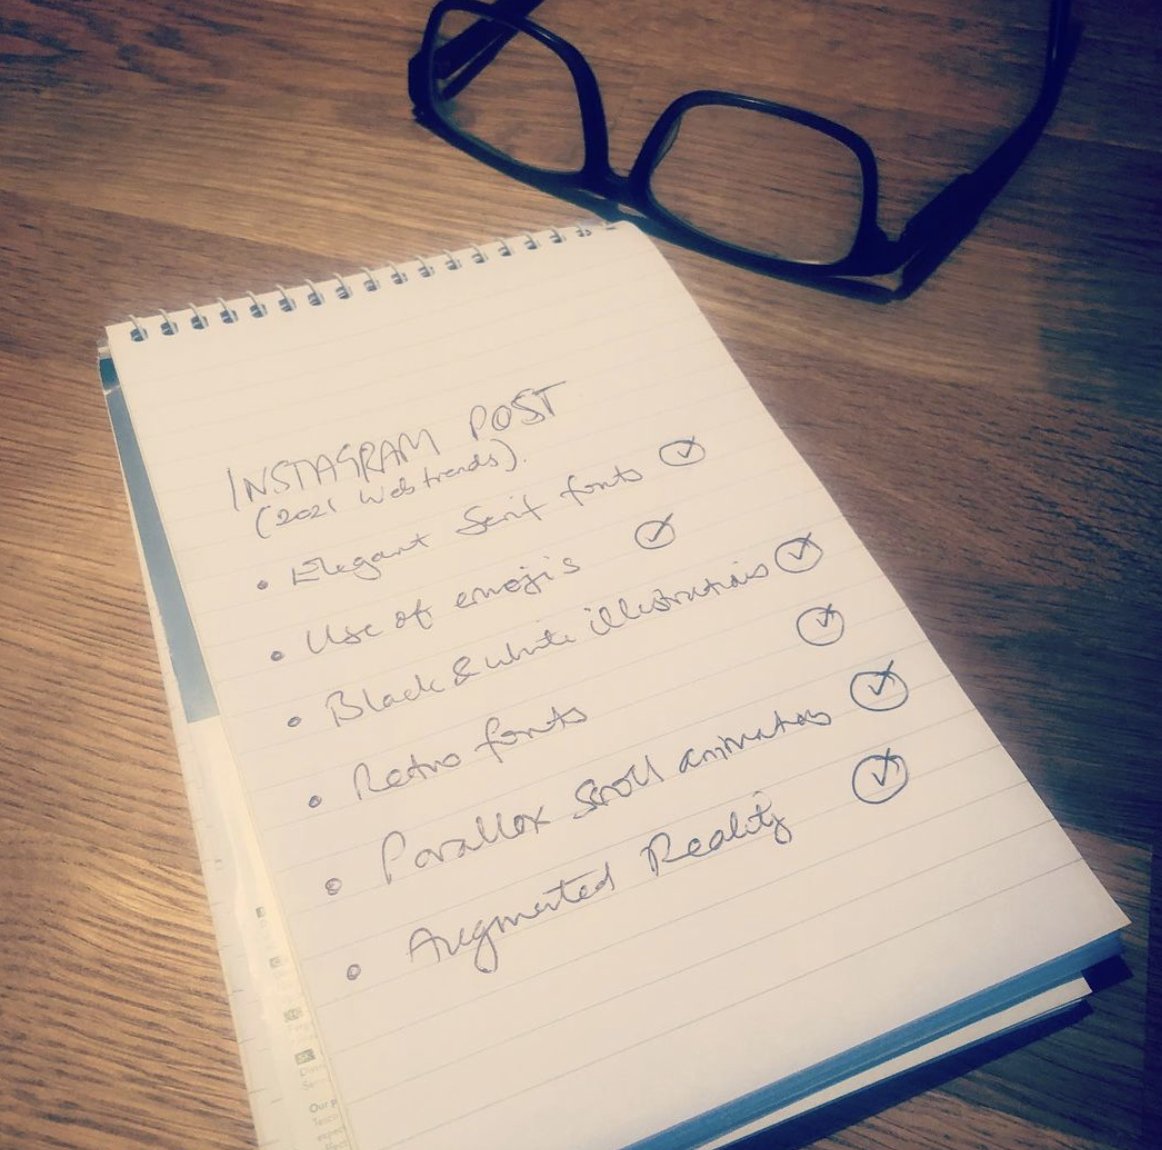 INSTAGRAM POST
(2021 Web trends).
• Elegant Serif fonts
• Use of emojis
• Black & white illustrations
• Retro fonts
• Parallax Scroll animations
• Augmented Reality
Our